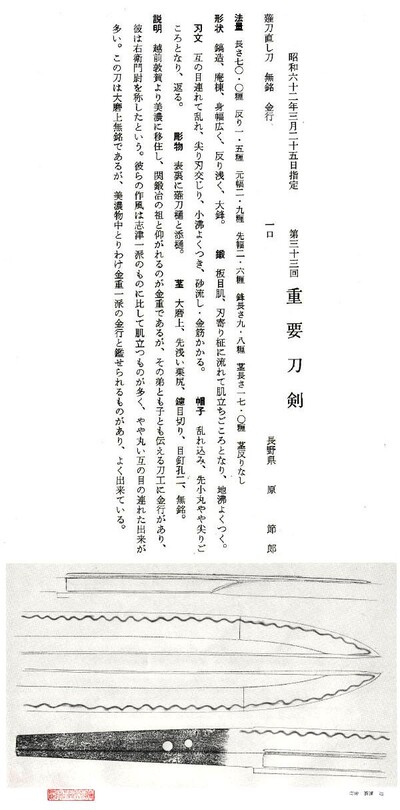 昭和六十二年三月二十五日指定　第三十三回　重要刀剣
薙刀直し刀　無銘　金行　一口　長野県　原　節郎
法量　長さ七〇・〇糎　反り一・五糎　元幅二・九糎　先幅二・六糎　鋒長さ九・八糎　茎長さ一七・〇糎　茎反りなし
形状　鎬造、庵棟、身幅広く、反り浅く、大鋒。　鍛　板目肌、刃寄り柾に流れて肌立ちごころとなり、地沸よくつく。
刃文　互の目連れて乱れ、尖り刃交じり、小沸よくつき、砂流し・金筋かかる。　帽子　乱れ込み、先小丸やや尖りご
ころとなり、返る。　彫物　表裏に薙刀樋と添樋。　茎　大磨上、先浅い栗尻、鑢目切り、目釘孔二、無銘。
説明　越前敦賀より美濃に移住し、関鍛冶の祖と仰がれるのが金重であるが、その弟とも子とも伝える刀工に金行があり、
彼は右衛門尉を称したという。彼らの作風は志津一派のものに比して肌立つものが多く、やや丸い互の目の連れた出来が
多い。この刀は大磨上無銘であるが、美濃物中とりわけ金重一派の金行と鑑せられるものがあり、よく出来ている。